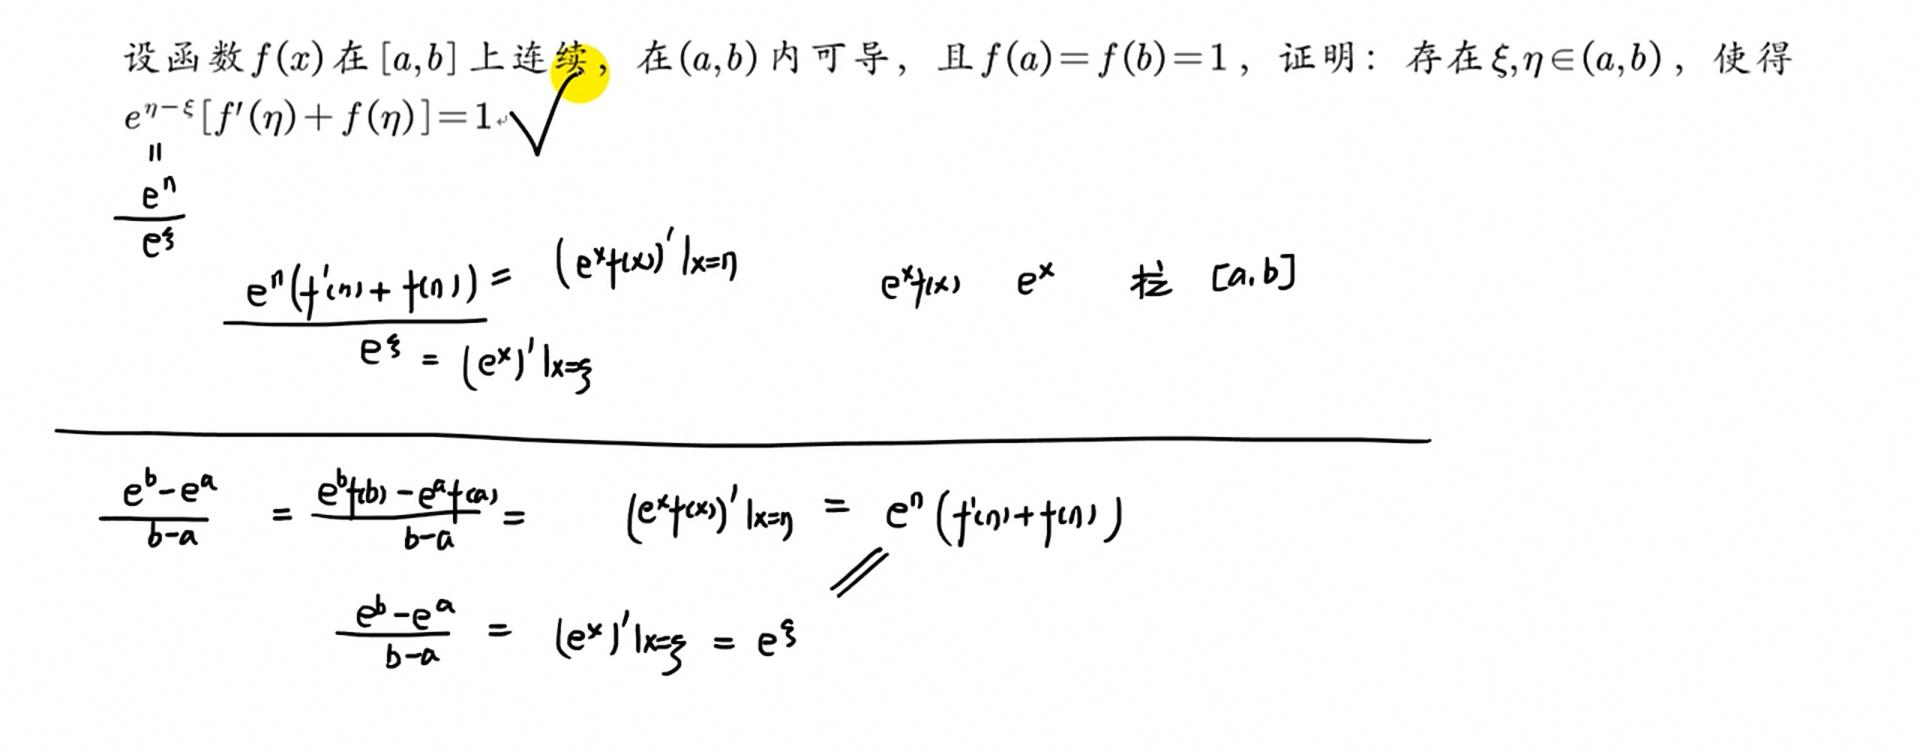 设函数f(x)在[a,b]上连续，在(a,b)内可导，且f(a)=f(b)=1，证明：存在ξ,η∈(a,b)，使得
e^{η-ξ}[f′(η)+f(η)]=1
=
e^η
e^ξ
e^η(f′(η)+f(η)) = (e^x f(x))′|x=η
e^ξ = (e^x)′|x=ξ
e^x f(x) e^x 拉 [a,b]
e^b-e^a / b-a = e^b f(b)-e^a f(a) / b-a = (e^x f(x))′|x=η = e^η(f′(η)+f(η))
e^b-e^a / b-a = (e^x)′|x=ξ = e^ξ